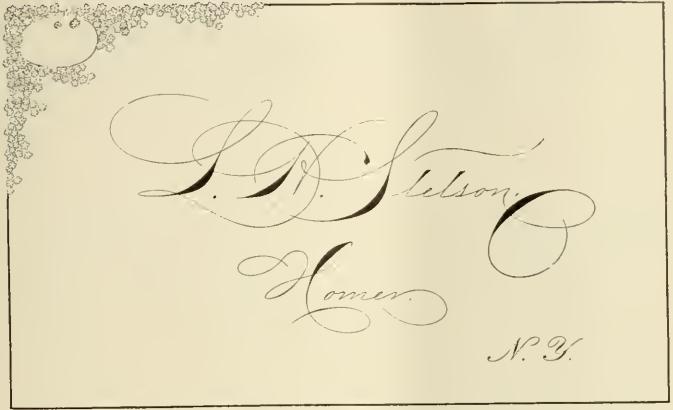 L. D. Stetson.
Homer.
N. Y.